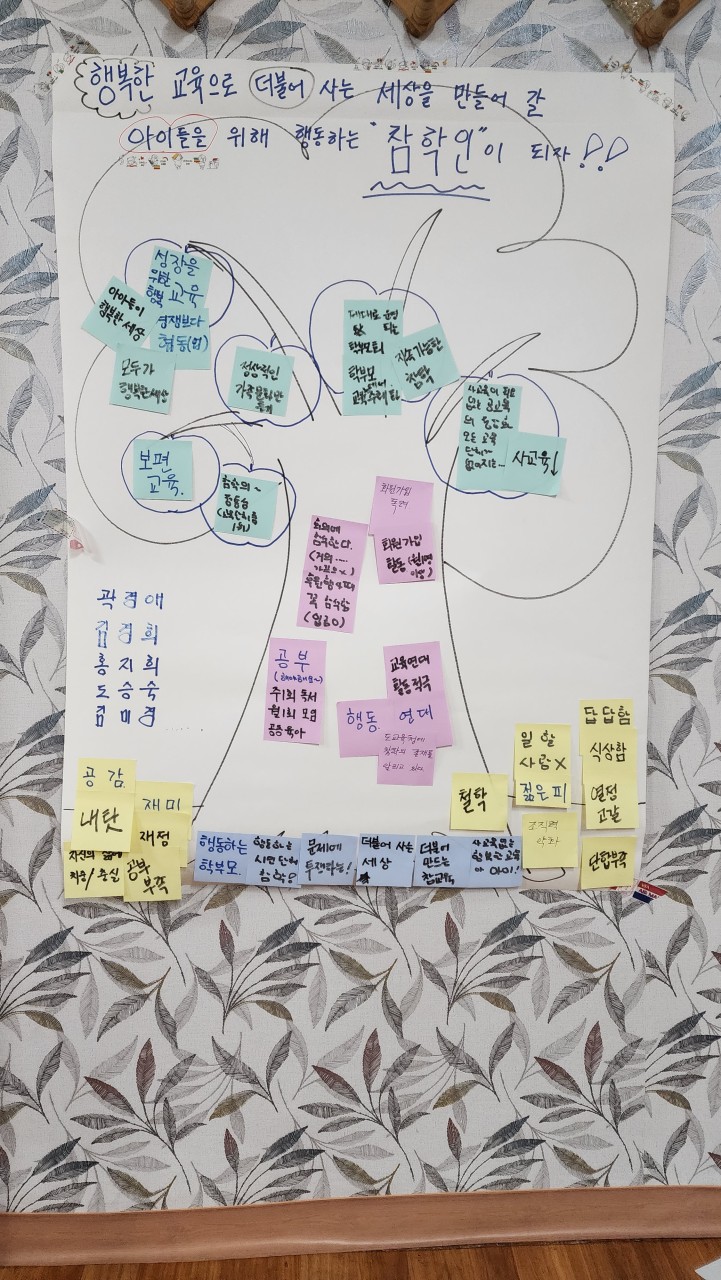 행복한 교육으로 더불어 사는 세상을 만들어 갈
아이들을 위해 행동하는 "참학인"이 되자!!
성장을
위한
행복 교육
경쟁보다
협동(력)
아이들이
행복한 세상
모두가
행복한 세상
정상적인
가족문화만
들기
제대로 운영
되는
학부모회
학부모
교육주체화
지속가능한
참학
사교육이 필요
없는 공교육
모든 교육
단체가
없어지는..
사교육↓
보편
교육.
참숙의~
(교육단체중
1위)
회원가입
독려
회원가입
활동(월1명
이상)
회의에
참석한다.
꼭 참석함
공부
(해야해요~)
주1회 독서
월1회 모임
공동육아
교육연대
활동적극
행동. 연대
도교육청에
참학의 존재를
알리고 싶다.
곽경애
김경희
홍지희
도승숙
김미경
공감
내탓
재미
재정
자신의 삶에
치중/충실
공부
부족
행동하는
학부모.
행동하는
시민단체
참학?
문제에
투쟁하는!
더불어 사는
세상
더불어
만드는
참교육
사교육없는
행복한 교육
아이!
철학
일 할
사람X
젊은 피
조직력
약화
답답함
식상함
열정
고갈
단합부족